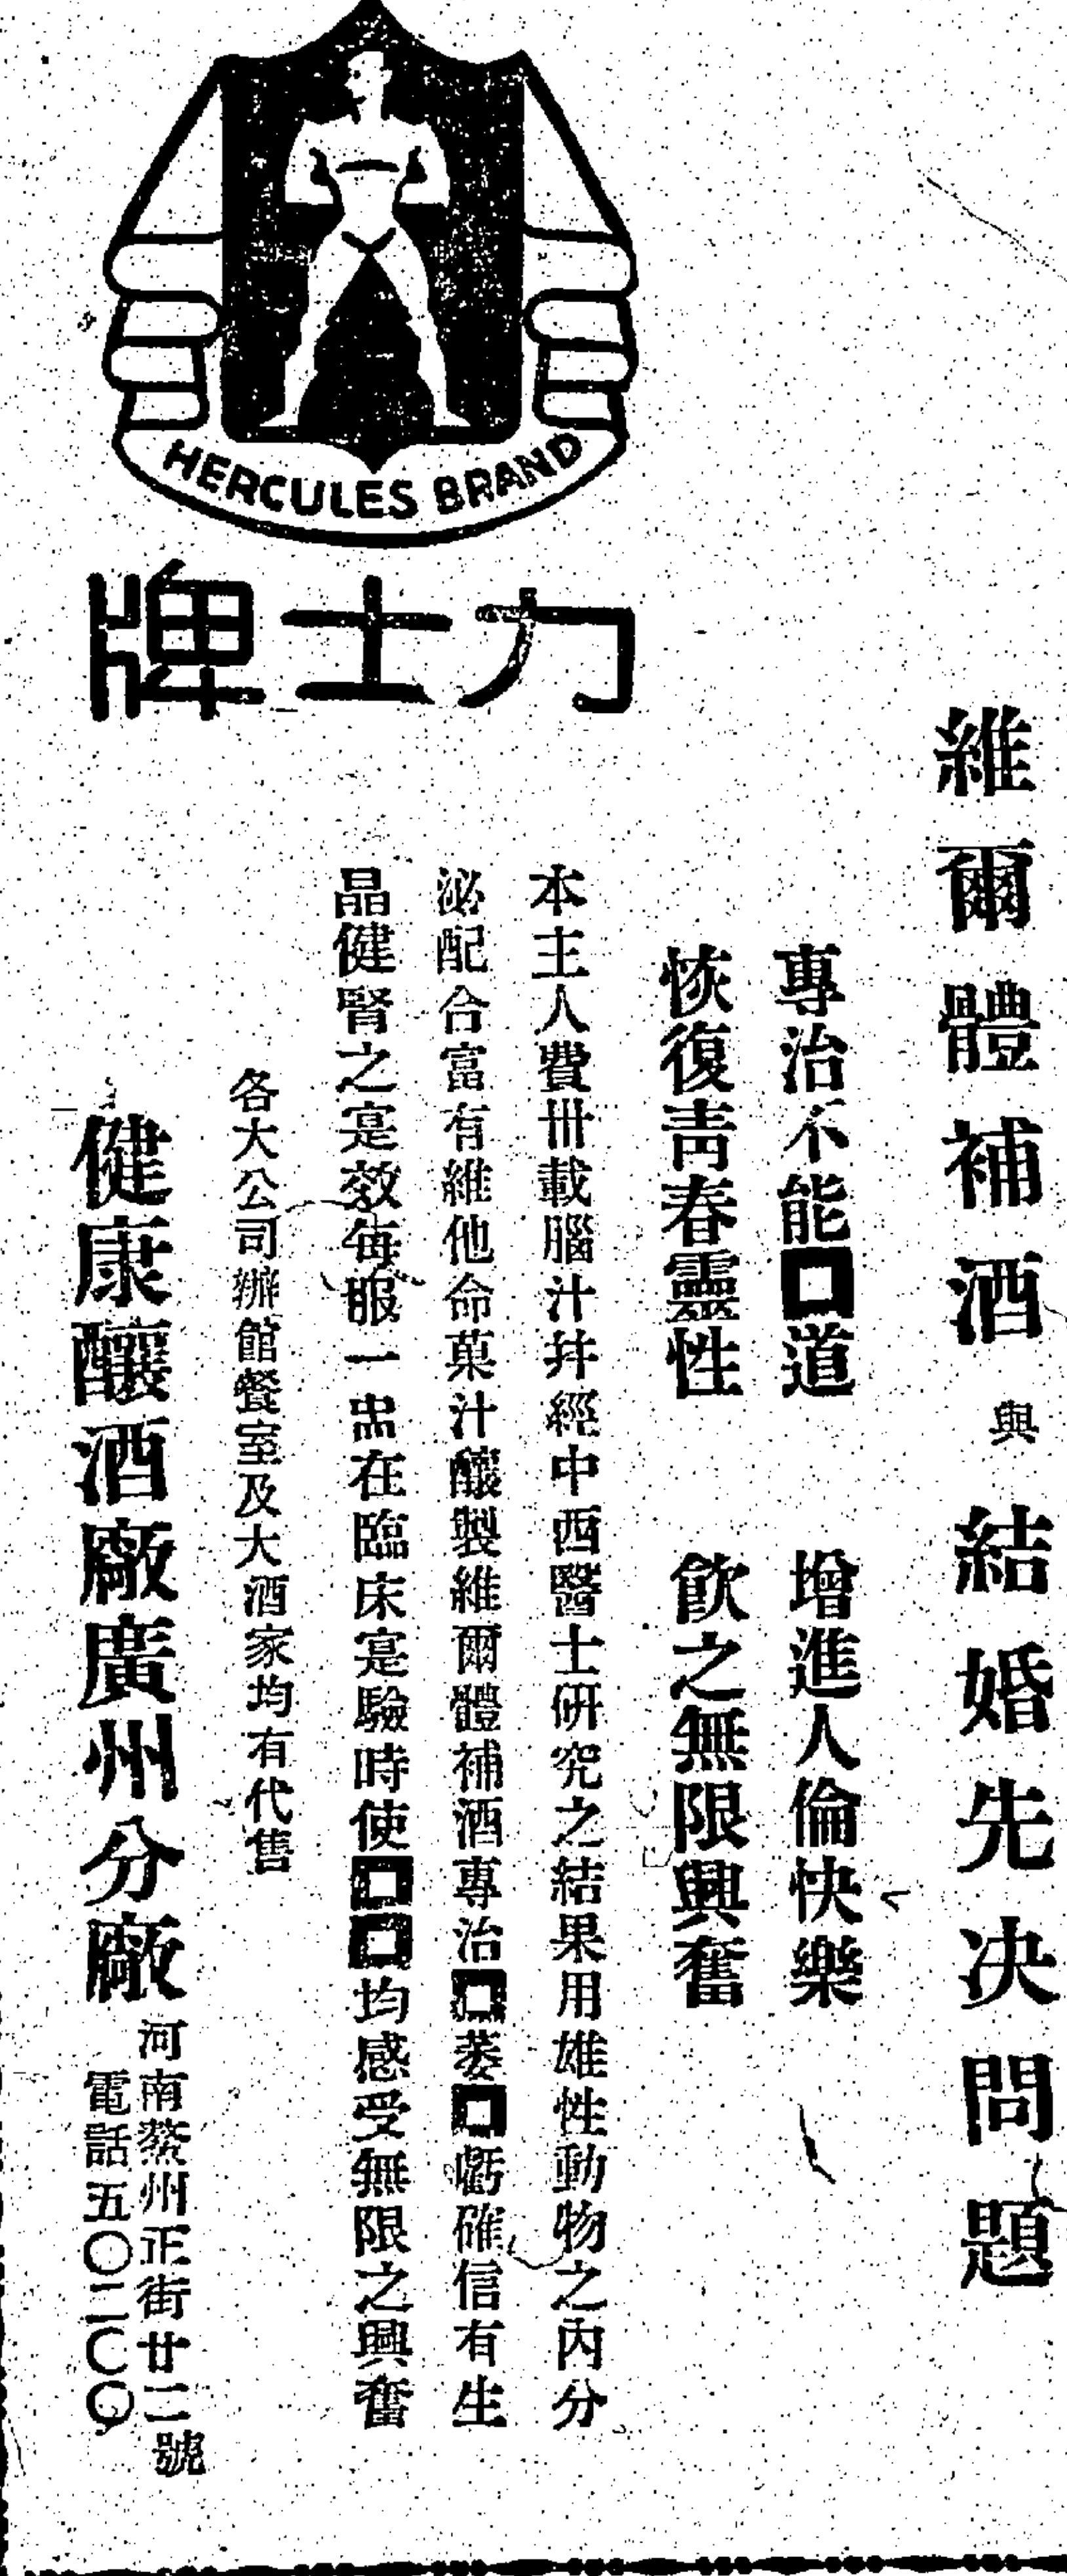 HERCULES BRAND
力士牌
維爾體補酒與結婚先决問題
專治不能□道 增進人倫快樂
恢復靑春靈性 飮之無限興奮
本主人費卅載腦汁幷經中西醫士研究之結果用雄性動物之內分
泌配合富有維他命菓汁釀製維爾體補酒專治□萎□虧確信有生
晶健腎之寔效每服一盅在臨床寔驗時使□□均感受無限之興奮
各大公司辦館餐室及大酒家均有代售
健康釀酒廠廣州分廠
河南鰲州正街廿二號
電話五〇二〇〇